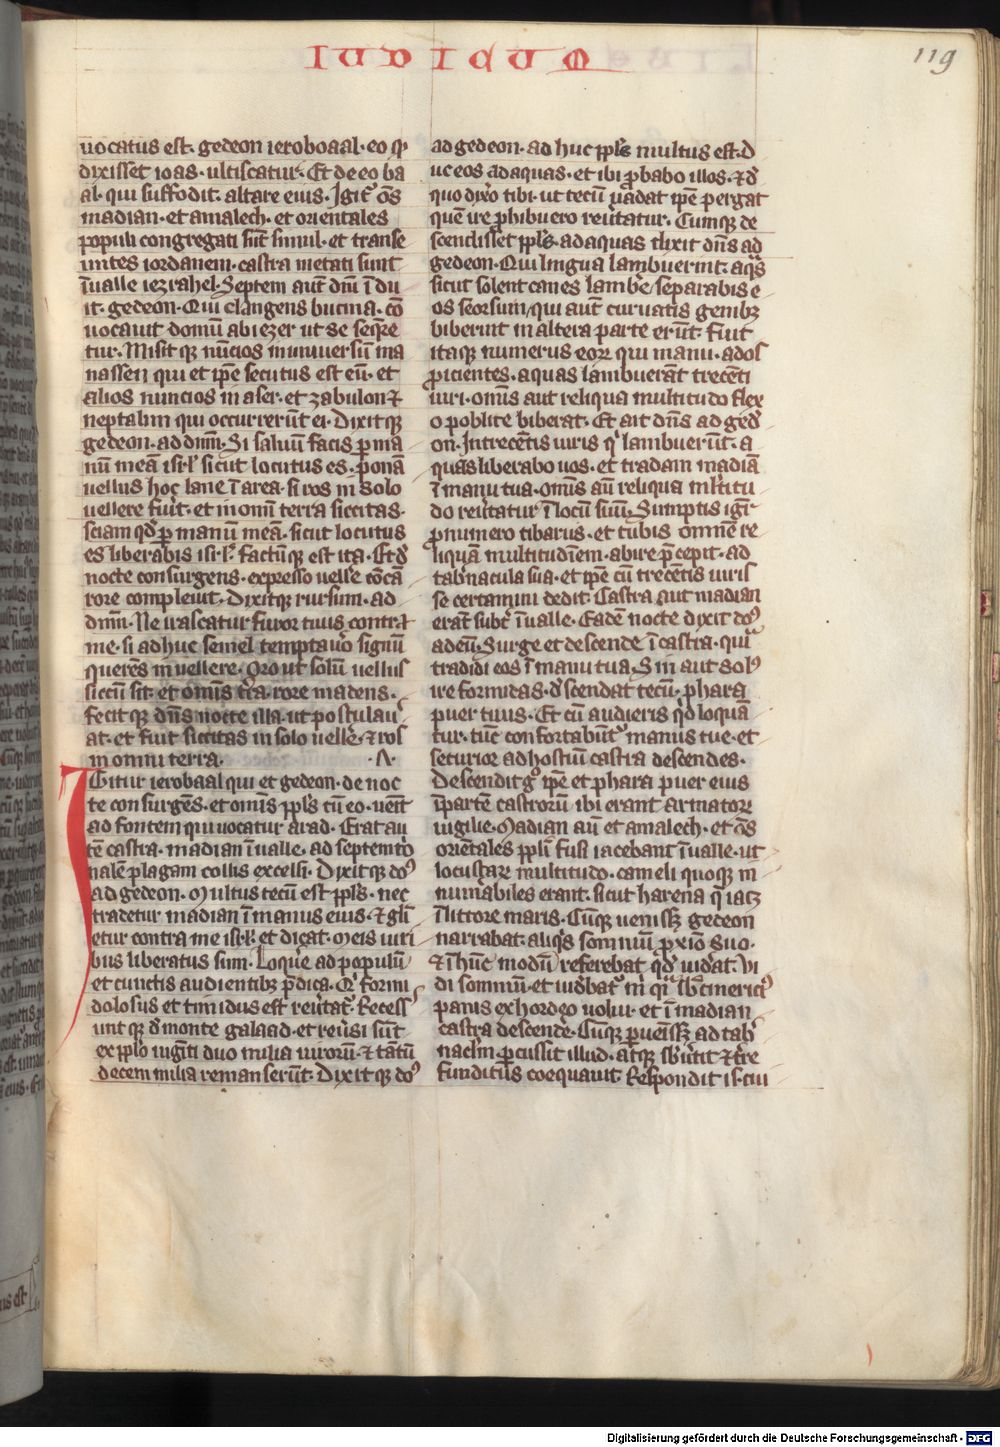 IUDICUM
119
uocatus est. gedeon ieroboaal. eo qͥ
dixisset ioas. ultiscatur. Et de eo ba
al. qui suffodit. altare eius. Igit᷑ oс̄s
madian. et amalech. et orientales
populi congregati sūt simul. et transe
untes iordanem. castra metati sunt
ī ualle iezrahel. Septem aūt dn̄i īdu
it. gedeon. Qui clangens bucina. cō
uocauit domū abiezer ut se seqͥre
tur. Misit qꝫ nūcios in uniuersū ma
nassen qui et ip̄e secutus est eū. et
alios nuncios in aser. et zabulon ⁊
neptalim qui occurrerūt ei. Dixitqꝫ
gedeon. ad dn̄m. Si saluū facis ꝑ ma
nū meā isrl̄ sicut locutus es. ponā
uellus hoc lane ī area. si ros in solo
uellere fuīt. et in omī terra siccitas.
sciam qd̄ ꝑ manū meā. sicut locutus
es liberabis isrl̄. factūqꝫ est ita. Et d̄
nocte consurgens. expresso uelle cōcā
rore compleuit. Dixitqꝫ rursum. ad
dn̄m. Ne irascatur furor tuus contra
me. si adhuc semel temptauᵒo signū
querēs in uellere. Oro ut solū uellus
siccū sit. et omīs t̄ra. rore madens.
fecitqꝫ dn̄s nocte illa. ut postulau᷑
at. et fuit siccitas in solo uelle᷑. ⁊ ros
in omni terra.
IGitur ierobaal qui et gedeon. de noc
te consurgēs. et omīs ppl̄s cū eo. uenīt
ad fontem qui uocatur arad. Erat au
tē castra. madian ī ualle. ad septemtͥo
nalē plagam collis excelsi. Dixitqꝫ do᷒
ad gedeon. Multus tecū est ppl̄s. nec
tradetur madian ī manus eius. ⁊ glī
etur contra me isrl̄. et dicat. Meis uiri
bus liberatus sum. Loqͥre ad populū
et cunctis audientibꝫ p̄dica. Qͥ formi
dolosus et timidus est reūtat᷑. Recess᷑
untqꝫ d̄ monte galaad. et reūsi sūt
ex ppl̄o uigīti duo milia uirorū. ⁊ tātū
decem milia remanserūt. Dixitqꝫ do᷒
ad gedeon. adhuc ppl̄s multus est. d
uc eos ad aquas. et ibi ꝓbabo illos. ⁊ d̄
quo dixͦo tibi. ut tecū uadat ip̄e pergat
quē ire ꝓhibuero reūtatur. Cumqꝫ de
scendisset ppl̄s. ad aquas dixit dn̄s ad
gedeon. Qui lingua lambuerint. aqͣs
sicut solent canes lambe᷑ separabis e
os seorsum. qui aut̄ curuatis genibꝫ
biberint in altera parte erūt. Fuit
itaqꝫ numerus eorꝝ qui manu. ad os
ꝓicientes. aquas lambuerāt trecēti
uiri. omīs aut̄ reliqua multitudo flex
o poblite biberat. Et ait dn̄s ad ged᷑
on. In trecētis uiris qͥ lambuerūt. a
quas liberabo uos. et tradam madiā
ī manu tua. omīs aū reliqua ml̄titu
do reūtatur ī locū suū. Sumptis igr̄
ꝓ numero cibariis. et tubis omnē re
liquā multitudīem. abire p̄cepit. ad
tab̄nacula sua. et ip̄e cū trecētis uiris
se certamini dedit. Castra aut̄ madian
erāt subt᷑ ī ualle. Eadē nocte dixit do᷒
ad eū. Surge et descende ī castra. quͥa
tradidi eos ī manu tua. Sin aut̄ sol᷒
ire formidas. d̄scendat tecū. phara
puer tuus. Et cū audieris qͥd loquā
tur. tūc confortabūt᷑ manus tue. et
securior ad hostiū castra descendes.
Descendit gͦ ip̄e et phara puer eius
ī partē castrorū ibi erant armatoꝝ
uigilie. Madian aū et amalech. et oс̄s
oriētales ppl̄i fusi iacebant ī ualle. ut
locustaꝝ multitudo. cameli quoqꝫ in
numabiles erant. sicut harena q̄ iacꝫ
ī littore maris. Cūqꝫ uenissꝫ gedeon
narrabat. aliqͥs somniū ꝓxīo suo.
⁊ ī hūc modū referebat qͥd uid̄at. Vi
di somniū. et uid̄bat᷑ m̄ qͥ. sb̄cineric᷒
panis ex hordeo uolui. et ī madian
castra descende. Cūqꝫ ꝑuēissꝫ ad tab̄
naclm̄ ꝑcussit illud. atqꝫ sb̄ūtit ⁊ t̄re
funditus coequauit. Respondit is. cui
Digitalisierung gefördert durch die Deutsche Forschungsgemeinschaft - DFG